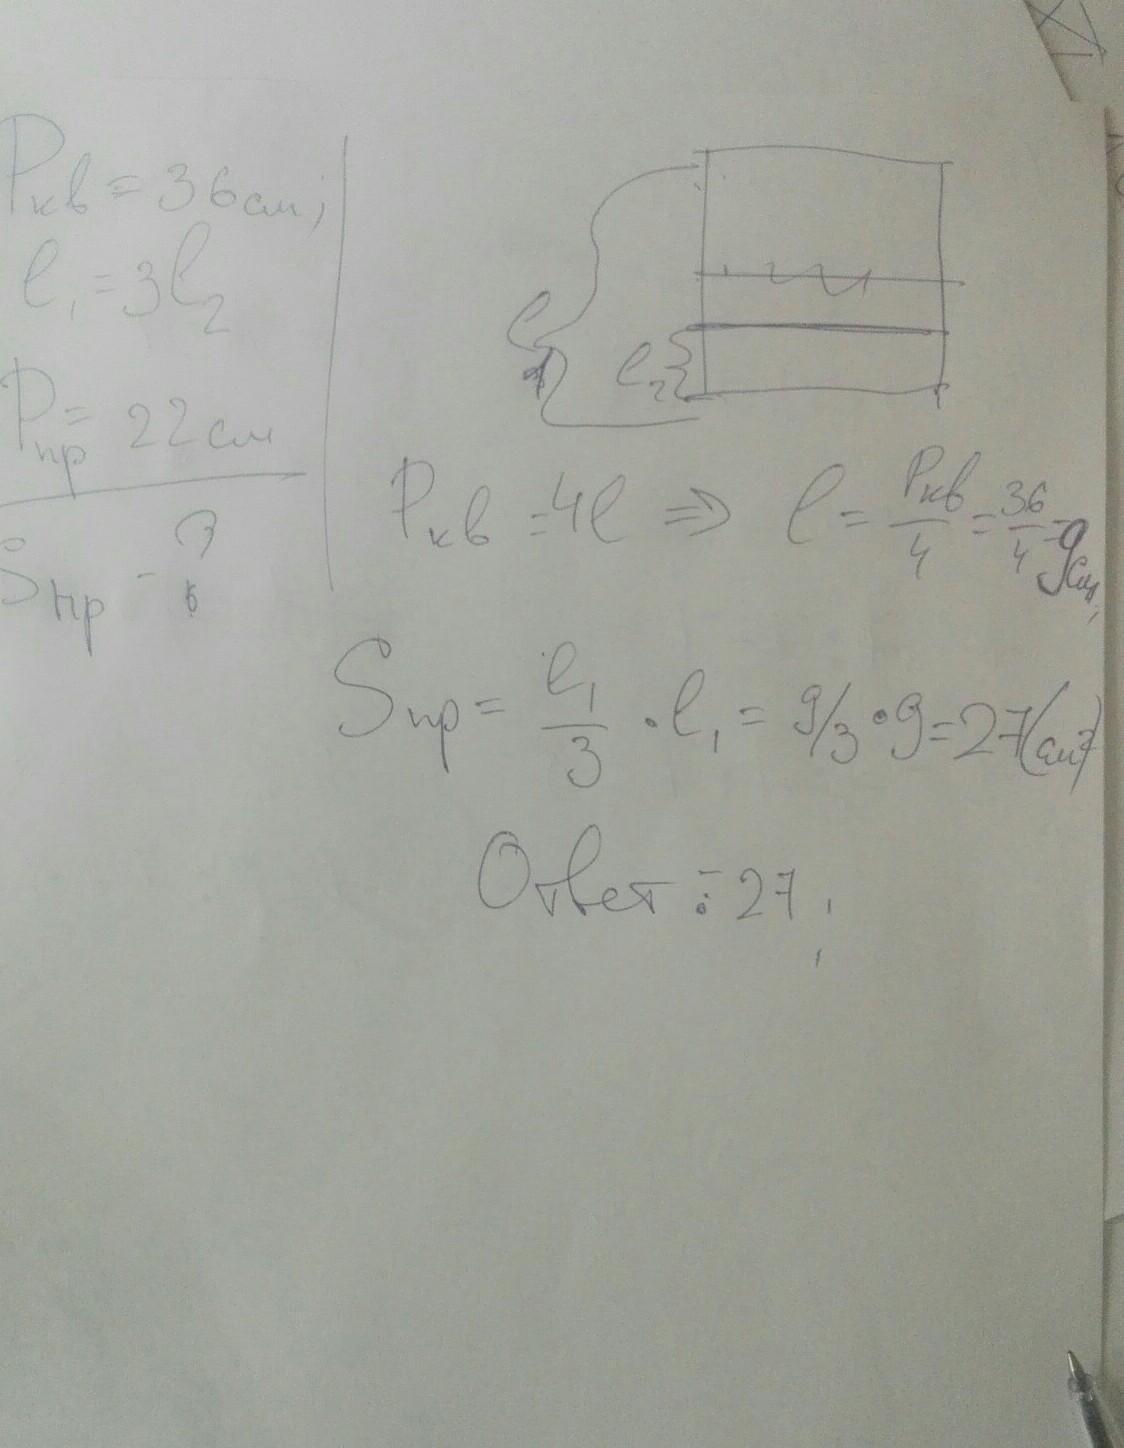 Pкв = 36см;
l₁ = 3l₂
Pпр = 22см
Sпр - ?
l₁
l₂
Pкв = 4l ⇒ l = Pкв/4 = 36/4 = 9см,
Sпр = l₁/3 · l₁ = 9/3 · 9 = 27(см²)
Ответ: 27;